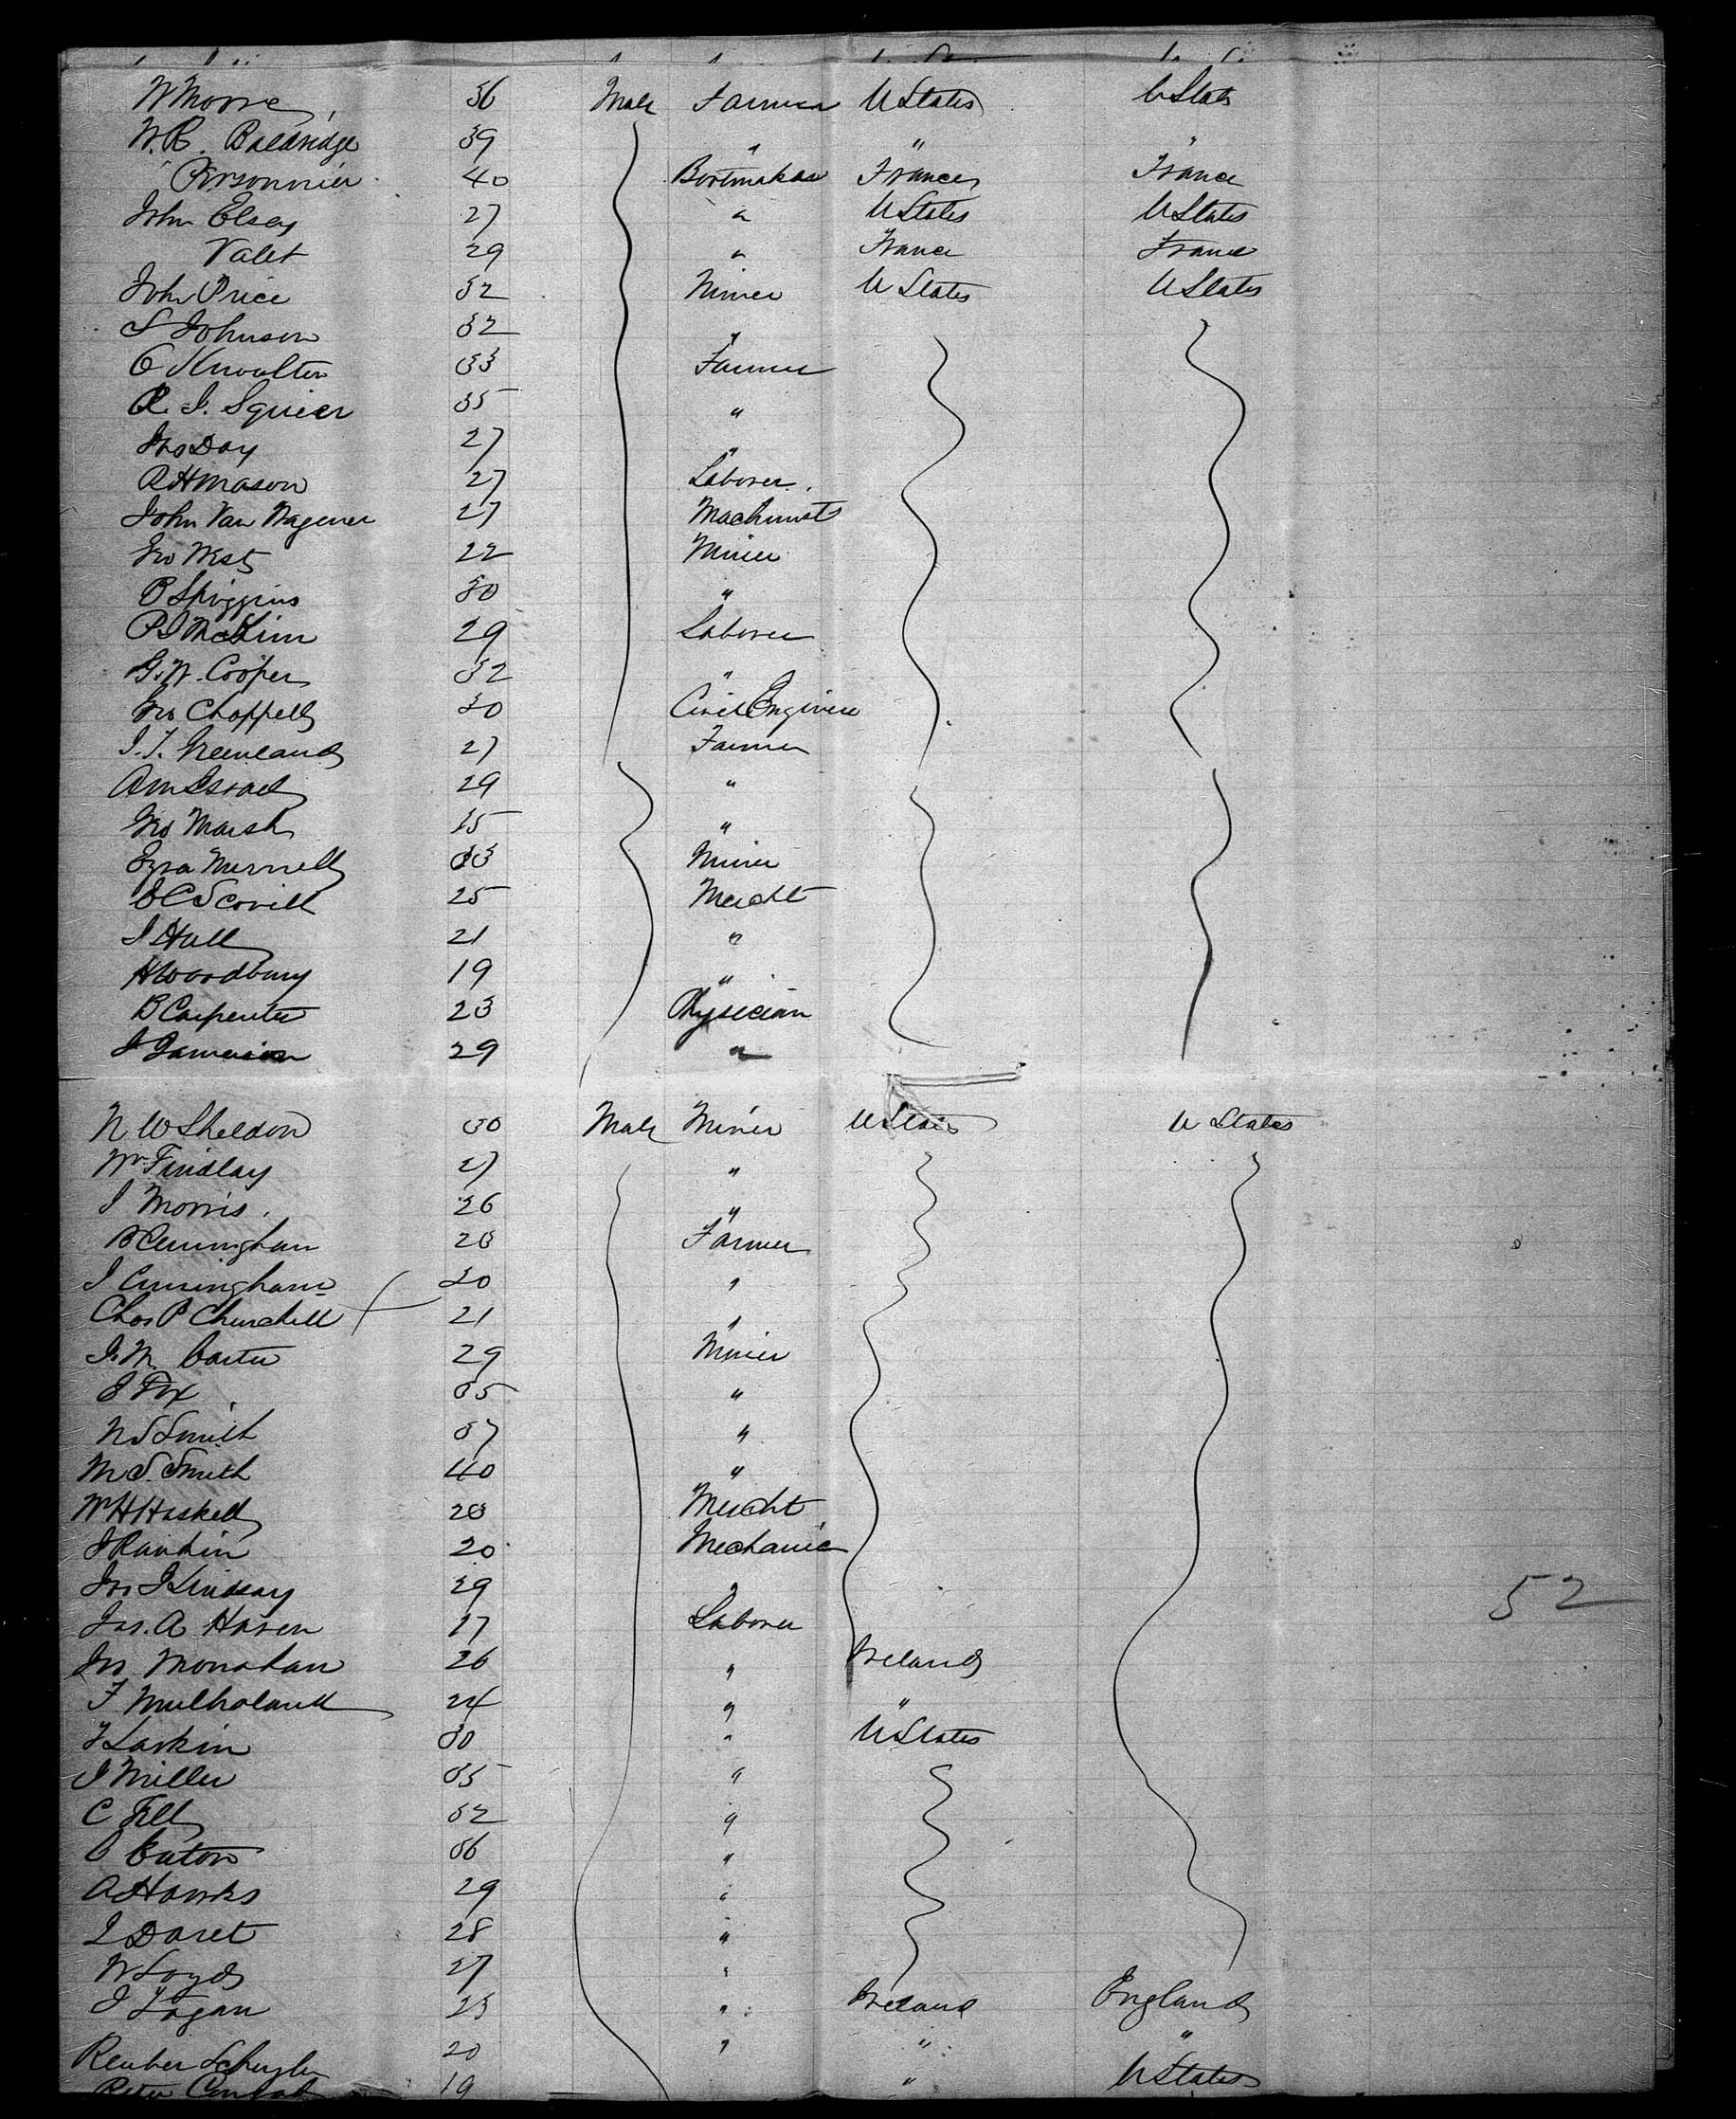 W Morse 36 Male Farmer U States U States
W. R. Baldridge 39 " " "
Personnier 40 Bootmaker France France
John Elsey 27 " U States U States
Valet 29 " France France
John Price 32 Miner U States U States
S Johnson 32 "
O Knoulton 33 Farmer
R. I. Squier 35 "
Jno Day 27 "
R H Mason 27 Laborer
John Van Wagener 27 Machinist
Jno West 22 Miner
B Spriggins 30 "
P J McKim 29 Laborer
G. W. Cooper 32 "
Jno Chappell 30 Civil Engineer
J. T. Greenland 27 Farmer
A M Israel 29 "
Jno Marsh 15 "
Ezra Merrell 33 Miner
E C Scovill 25 Mercht
J Hall 21 "
H Woodbury 19 "
B Carpenter 23 Physician
J Jameison 29 "
N W Sheldon 30 Male Miner U States U States
Wm Findlay 27 "
J Morris 26 "
B Cuningham 28 Farmer
J Cuningham 20 "
Chas P Churchill 21 "
J. M. Carter 29 Miner
J Fox 35 "
N S Smith 37 "
M S. Smith 40 "
W H Haskell 28 Mercht
J Rankin 20 Mechanic
Jno J Lindsay 29 "
Jas. A Haven 27 Laborer 52
Jno Monahan 26 " Ireland
F Mulholand 24 " "
T Larkin 30 " U States
J Miller 35 "
C Fell 32 "
O Eaton 36 "
A Hawks 29 "
L Daret 28 "
W Loyd 27 "
J Fagan 23 " Ireland England
Reuben Schuyler 20 " " "
Peter 19 " U States